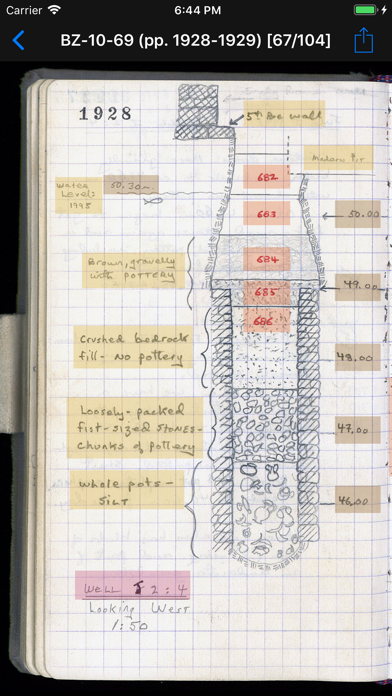 Carrier 6:44 PM
BZ-10-69 (pp. 1928-1929) [67/104]
1928
5th Bc wall
682
Water
Level:
1995
50.30m.
683
50.00
684
Brown, gravelly
with POTTERY
49.00
685
686
Crushed bedrock
fill - No pottery
48.00
Loosely-packed
fist-sized STONES-
chunks of pottery
47.00
whole pots -
SILT
46.00
WELL J 2:4
Looking West
1:50